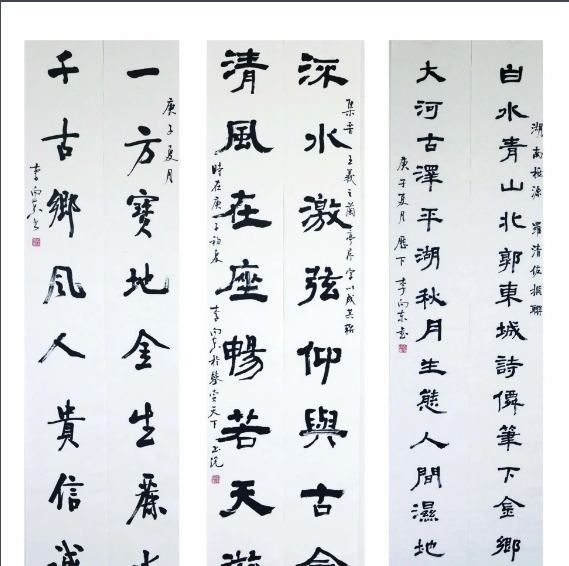 白水青山北郭東城詩僊筆下金鄉
湖南 羅清 撰聯
大河古澤平湖秋月生態人間濕地
庚子夏月 歷下 李向東書
水激弦仰與古
集晉王羲之蘭亭序字以成其聯
清風在座暢若天
時在庚子初夏 李向東於 天下書院
一方寶地金生麗水
庚子夏月
千古鄉風人貴信誠
李向東書